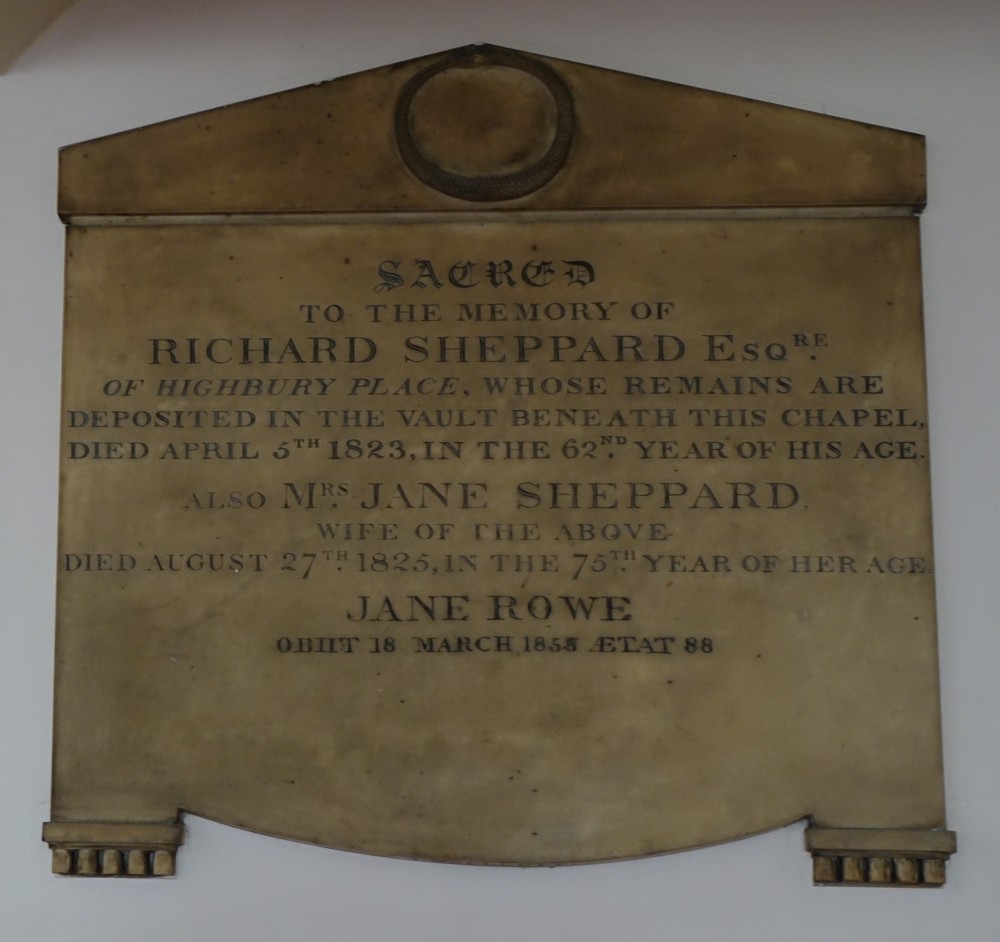 SACRED
TO THE MEMORY OF
RICHARD SHEPPARD ESQRE.
OF HIGHBURY PLACE, WHOSE REMAINS ARE
DEPOSITED IN THE VAULT BENEATH THIS CHAPEL,
DIED APRIL 5TH 1823, IN THE 62ND. YEAR OF HIS AGE.
ALSO MRS. JANE SHEPPARD,
WIFE OF THE ABOVE
DIED AUGUST 27TH. 1825, IN THE 75TH. YEAR OF HER AGE.
JANE ROWE
OBIIT 18 MARCH ÆTAT 88